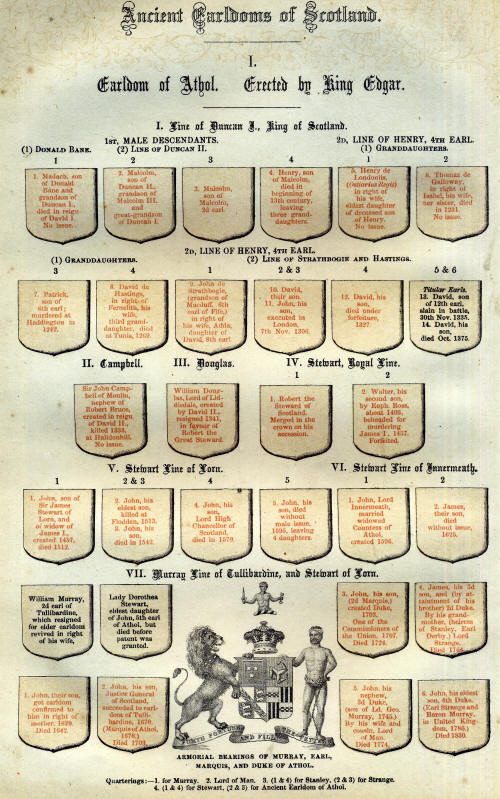 Ancient Earldoms of Scotland.
I.
Earldom of Athol. Erected by King Edgar.
I. Line of Duncan I., King of Scotland.
1ST, MALE DESCENDANTS.
2D, LINE OF HENRY, 4TH EARL.
(1) DONALD BANE.
(2) LINE OF DUNCAN II.
(1) GRANDDAUGHTERS.
1
2
3
4
1
2
1. Madach, son
of Donald
Bane and
grandson of
Duncan I.,
died in reign
of David I.
No issue.
2. Malcolm,
son of
Duncan II.,
grandson of
Malcolm III.
and
great-grandson
of Duncan I.
3. Malcolm,
son of
Malcolm,
2d earl.
4. Henry, son
of Malcolm,
died in
beginning of
13th century,
leaving
three grand-
daughters.
5. Henry de
Londoniis,
(Ostiarius Regis)
in right of
his wife,
eldest daughter
of deceased son
of Henry.
No issue.
6. Thomas de
Galloway,
in right of
Isabel, his wife,
her sister, died
in 1231.
No issue.
2D, LINE OF HENRY, 4TH EARL.
(1) GRANDDAUGHTERS.
(2) LINE OF STRATHBOGIE AND HASTINGS.
3
4
1
2 & 3
4
5 & 6
7. Patrick,
son of
6th earl;
murdered at
Haddington in
1242.
8. David de
Hastings,
in right of
Fernelith, his
wife,
third grand-
daughter, died
at Tunis, 1269.
9. John de
Strathbogie,
(grandson of
Macduff, 6th
earl of Fife,)
in right of
his wife, Adda,
daughter of
David, 8th earl
10. David,
their son.
11. John,
his son,
executed in
London,
7th Nov. 1306.
12. David, his
son,
died under
forfeiture,
1327.
Titular Earls.
13. David, son
of 12th earl,
slain in battle,
30th Nov. 1335.
14. David, his
son,
died Oct. 1375.
II. Campbell.
III. Douglas.
IV. Stewart, Royal Line.
1
2
Sir John Camp-
bell of Moulin,
nephew of
Robert Bruce,
created in reign
of David II.,
killed 1333,
at Halidonhill.
No issue.
William Doug-
las, Lord of Lid-
disdale, created
by David II.,
resigned 1341,
in favour of
Robert the
Great Steward.
1. Robert the
Steward of
Scotland.
Merged in the
crown on his
accession.
2. Walter, his
second son,
by Euph. Ross,
about 1403,
beheaded for
murdering
James I., 1437.
Forfeited.
V. Stewart Line of Lorn.
VI. Stewart Line of Innermeath.
1
2 & 3
4
5
1
2
1. John, son of
Sir James
Stewart of
Lorn, and
of widow of
James I.,
created 1457,
died 1512.
2. John, his
eldest son,
killed at
Flodden, 1513.
3. John, his
son,
died in 1542.
4. John, his
son,
Lord High
Chancellor of
Scotland,
died in 1579.
5. John, his
son,
died
without
male issue,
1595, leaving
4 daughters.
1. John, Lord
Innermeath,
married
widowed
Countess of
Athol,
created 1596.
2. James,
their son,
died
without issue,
1625.
VII. Murray Line of Tullibardine, and Stewart of Lorn.
William Murray,
2d earl of
Tullibardine,
which resigned
for elder earldom
revived in right
of his wife,
Lady Dorothea
Stewart,
eldest daughter
of John, 5th earl
of Athol, but
died before
patent was
granted.
3. John, his son,
(2d Marquis,)
created Duke,
1703,
One of the
Commissioners of
the Union, 1707.
Died 1724.
4. James, his 3d
son, and (by at-
tainment of his
brother) 2d Duke.
By his grand-
mother, (heiress
of Stanley, Earl
Derby,) Lord
Strange.
Died 1764.
1. John, their son,
got earldom
confirmed to
him in right of
mother, 1629.
Died 1642.
2. John, his son,
Justice General
of Scotland,
succeeded to earl-
dom of Tulli-
bardine, 1670.
(Marquis of Athol,
1676.)
Died 1703.
5. John, his
nephew,
3d Duke,
(son of Ld. Geo.
Murray, 1745.)
By his wife and
cousin, Lord
of Man.
Died 1774.
6. John, his eldest
son, 4th Duke.
(Earl Strange and
Baron Murray,
in United King-
dom, 1786.)
Died 1830.
FURTH FORTUNE AND FILL THE FETTERS
ARMORIAL BEARINGS OF MURRAY, EARL,
MARQUIS, AND DUKE OF ATHOL.
Quarterings:—1. for Murray. 2. Lord of Man. 3. (1 & 4) for Stanley, (2 & 3) for Strange.
4. (1 & 4) for Stewart, (2 & 3) for Ancient Earldom of Athol.